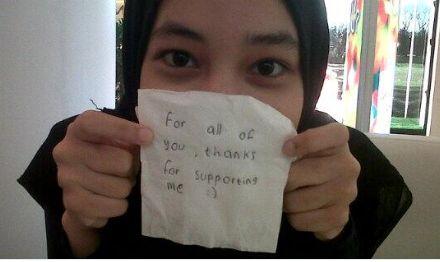 For all of
you, thanks
for supporting
me :)